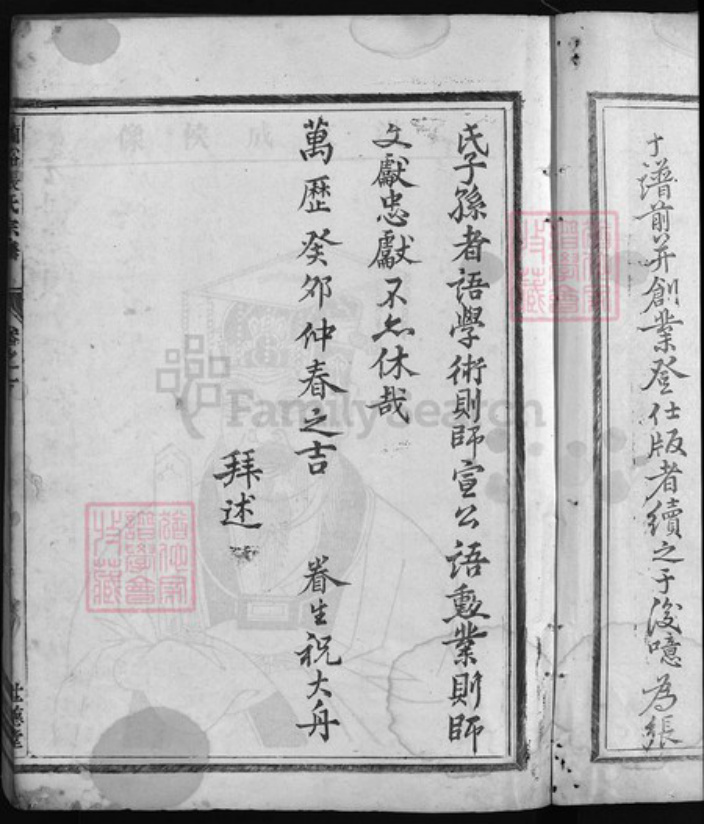 于譜前并創業登仕版者續之于後噫為張
氏子孫者語學術則師宣公語勳業則師
文獻忠獻不亦休哉
萬歷癸卯仲春之吉 眷生祝大舟
拜述
FamilySearch